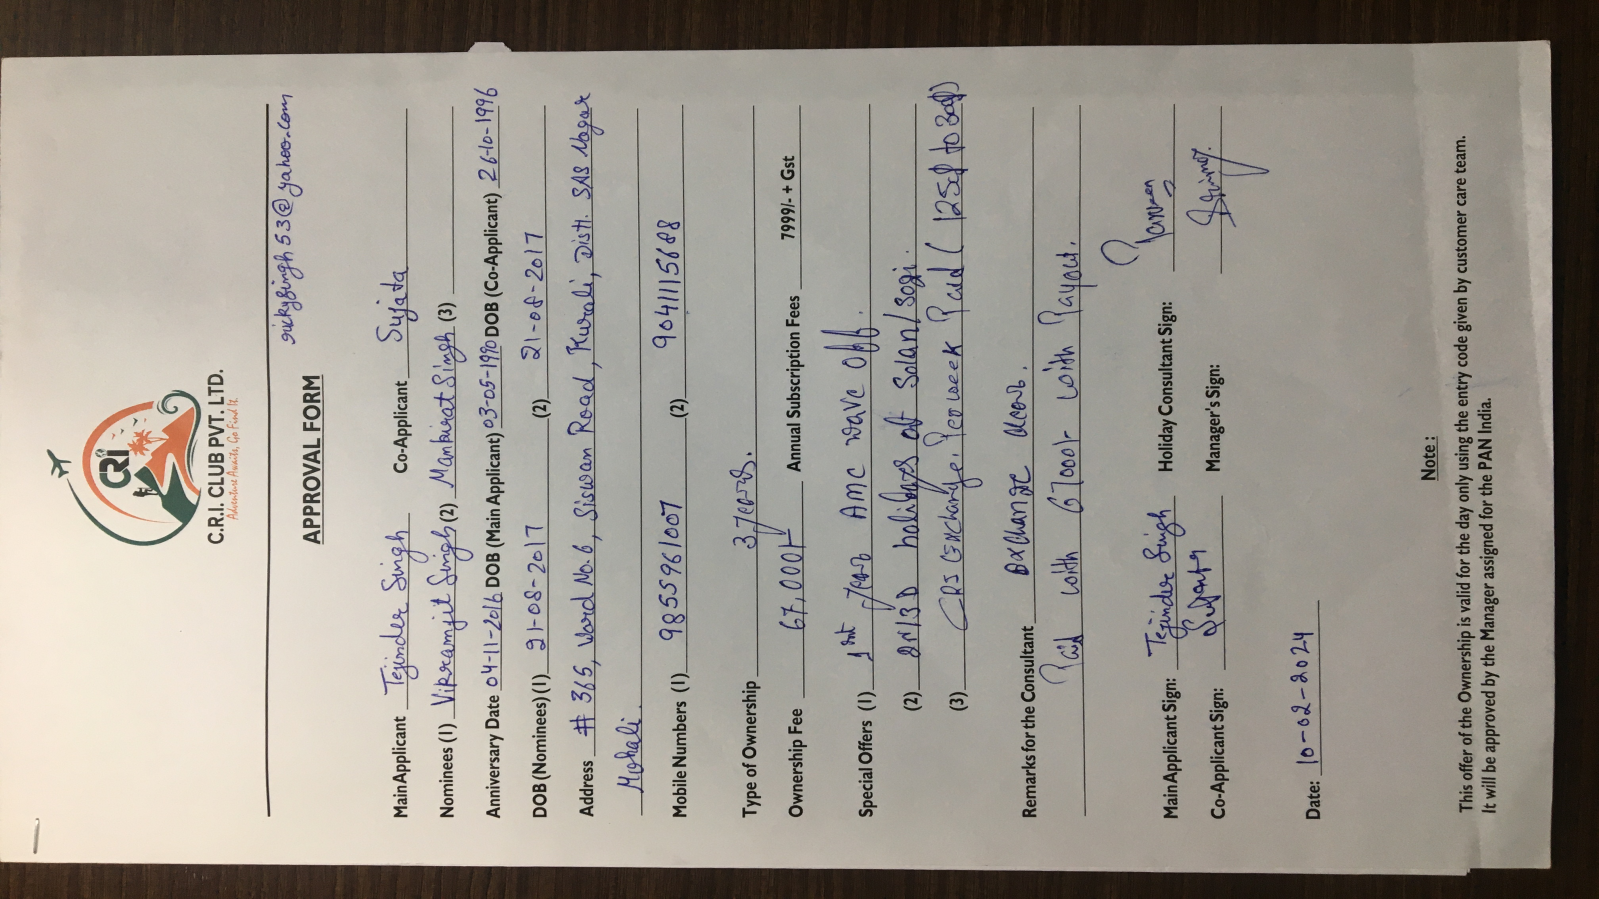 CRI
C.R.I. CLUB PVT. LTD.
Adventure Awaits, Go Find It.
rickysingh53@yahoo.com
APPROVAL FORM
Main Applicant Tejinder Singh Co-Applicant Sujata
Nominees (1) Vikramjit Singh (2) Mankirat Singh (3)
Anniversary Date 04-11-2016 DOB (Main Applicant) 03-05-1990 DOB (Co-Applicant) 26-10-1996
DOB (Nominees) (1) 21-08-2017 (2) 21-08-2017
Address # 365, Ward No. 6, Siswan Road, Kurali, Distt. SAS Nagar
Mohali.
Mobile Numbers (1) 9855961007 (2) 9041115688
Type of Ownership 3 years.
Ownership Fee 67,000/- Annual Subscription Fees 7999/- + Gst
Special Offers (1) 1st year AMC wave off.
(2) 2N/3D holidays at Solan/Sogi.
(3) CRI Exchange. Per week Paid (125$ to 300$)
Remarks for the Consultant exchange
Paid with 67000/- with Payout.
Main Applicant Sign: Tejinder Singh Holiday Consultant Sign:
Co-Applicant Sign: Sujata Manager's Sign:
Date: 10-02-2024
Note :
This offer of the Ownership is valid for the day only using the entry code given by customer care team.
It will be approved by the Manager assigned for the PAN India.